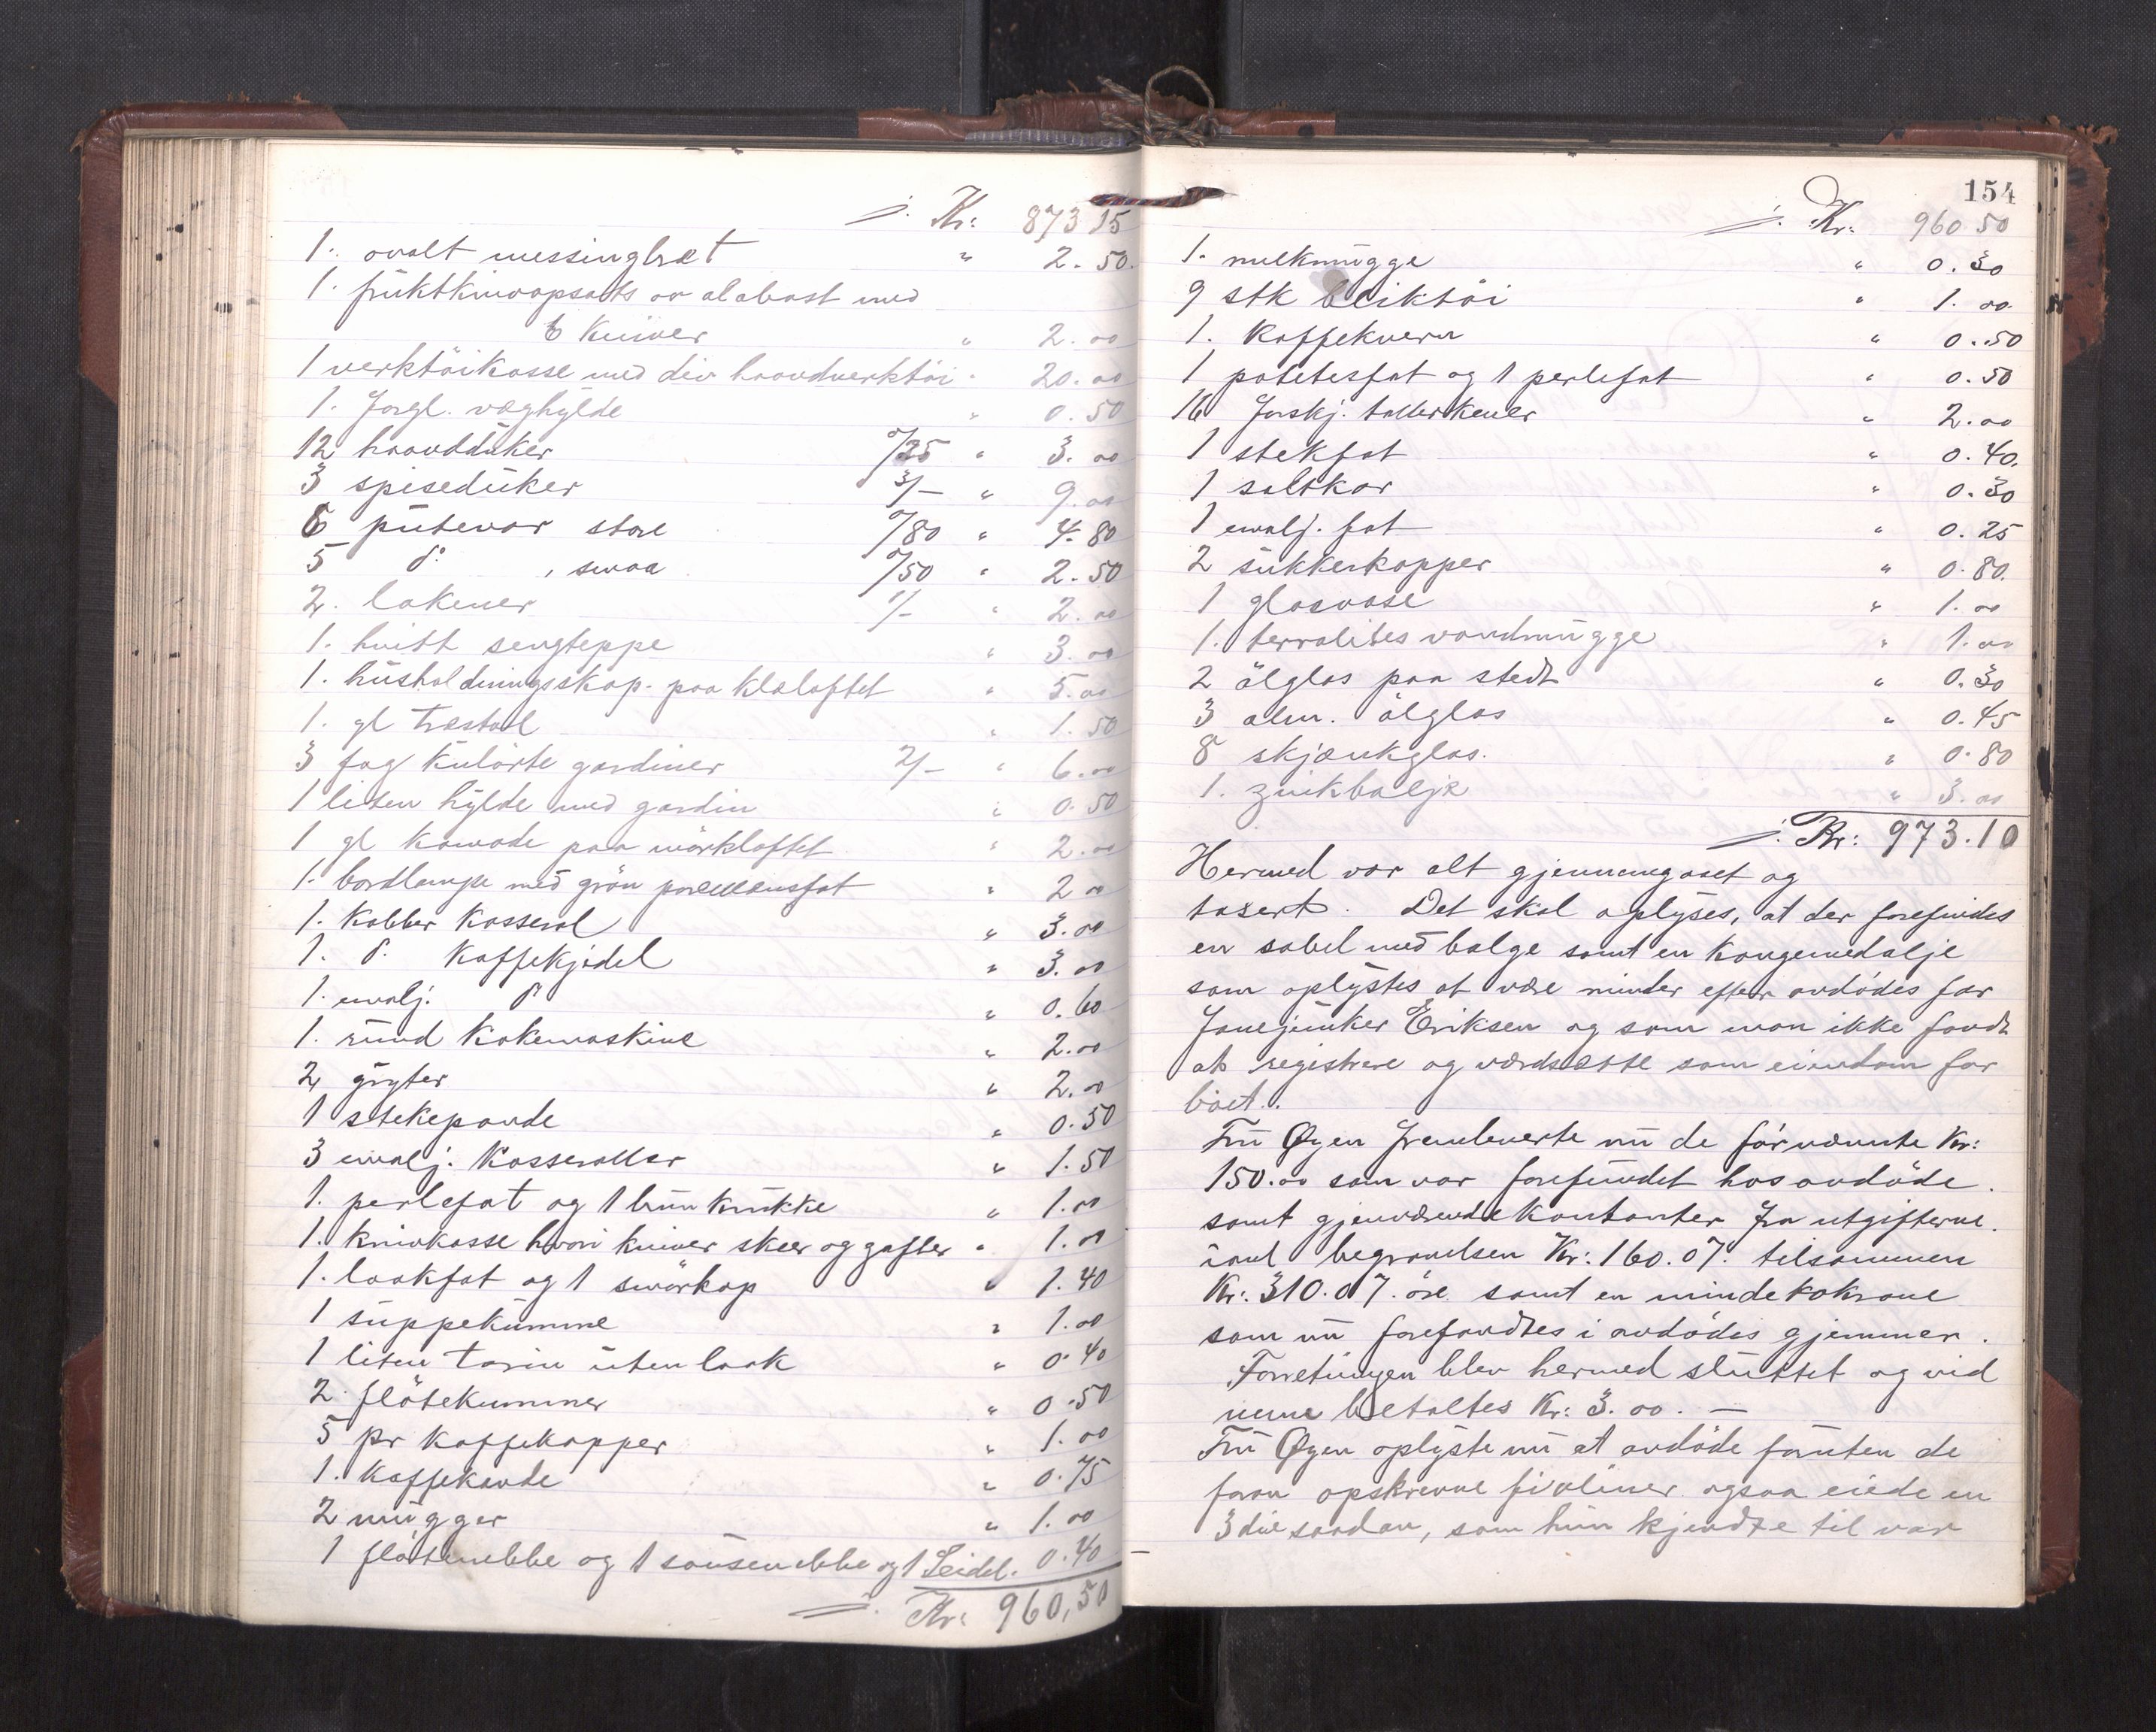 /. Kr: 873 15
1. ovalt messingbræt " 2.50.
1. fruktknivopsats av alabast med
6 kniver " 2.00
1 verktöikasse med div haandverktöi " 20.00
1. forgl. væghylde " 0.50
12 haandduker 0/25 " 3.00
3 spiseduker 3/- " 9.00
6 putevar store 0/80 " 4.80
5 do , smaa 0/50 " 2.50
2. lakener 1/- " 2.00
1. hvitt sengteppe " 3.00
1. husholdningsskap paa klæloftet " 5.00
1. gl træstol " 1.50
3 fag kulörte gardiner 2/- " 6.00
1 liten hylde med gardin " 0.50
1 gl komode paa mörkloftet " 2.00
1. bordlampe med grön porcellænsfot " 2.00
1. Kobber Kasserol " 3.00
1. do Kaffekjedel " 3.00
1. emalj. do " 0.60
1. rund kokemaskine " 2.00
2 gryter " 2.00
1 stekepande " 0.50
3 emalj. Kasseroller " 1.50
1. perlefat og 1 brun krukke " 1.00
1. knivkasse hvori kniver skeer og gafler " 1.00
1. lookfat og 1 smörkop " 1.40
1 suppekumme " 1.00
1 liten terin uten look " 0.40
2 flötekummer " 0.50
5 pr kaffekopper " 1.00
1. kaffekande " 0.75
2 mugger " 1.00
1 flötenebbe og 1 sausenebbe og 1 Seidel. 0.40
/. Kr: 960,50
154
/. Kr: 960 50
1. melkmugge " 0.30
9 stk bliktöi " 1.00
1. Kaffekvern " 0.50
1 potetesfat og 1 perlefat " 0.50
16 forskj. tallerkener " 2.00
1 stekfat " 0.40.
1 saltkar " 0.30
1 emalj. fat " 0.25
2 sukkerkopper " 0.80.
1 glasvase " 1.00
1. terralites vandmugge " 1.00
2 ölglas paa stedt " 0.30
3 alm. ölglas " 0.45
8 skjænkglas. " 0.80
1. zinkbalje " 3.00
/. Kr: 973.10
Hermed var alt gjennemgaaet og
taxert. Det skal oplyses, at der forefindes
en sabel med balge samt en Kongemedalje
som oplystes at være minder efter avdödes far
Fanejunker Eriksen og som man ikke fandt
at registrere og værdsætte som eiendom for
boet.
Fru Øyen fremleverte nu de förnævnte Kr:
150.00 som var forefundet hos avdöde.
samt gjenværende kontanter fra utgifterne.
ved begravelsen Kr: 160.07. tilsammen
Kr: 310.07. öre samt en mindetokrone
som nu forefandtes i avdödes gjemmer.
Forretningen blev hermed sluttet og vid
nerne betaltes Kr: 3.00. —
Fru Øyen oplyste nu at avdöde foruten de
foran opskrevne fioliner ogsaa eiede en
3die saadan, som hun kjendte til var